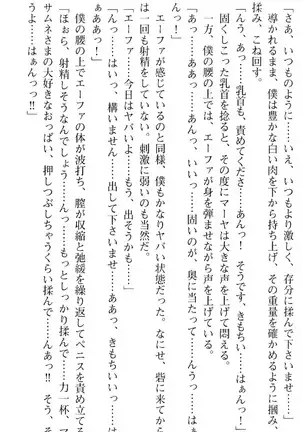 「さあ、いつものように……いえ、いつもより激しく、存分に揉んで下さいませ……」
導かれるまま、僕は豊かな白い肉を下から持ち上げ、その重量を確かめるように掴み、
揉み、こね回す。
「んっ、あっ……乳首も、責めてくださ……あんっ！　そうです、きもちい……はぁんっ」
固くしこった乳首を捻ると、その度にマーヤは大きな声を上げて悶える。
一方、僕の腰の上では、エーファが身を弾ませながら声を上げている。
「あっ、んっ……はっ、いっ……固いのが、奥に当たって……んうっ……はぁ
「エーファ……今日はヤバいよ……もう、出そうかも……」
「んっ……はいっ、構いません……出して下さいませ……ああっ、きもちいいっ……は
ぁああっ！」
エーファが感じているのと同様、僕もかなりヤバい状態だった。なにせ、砦に来てから
は一回も射精をしていない。刺激に弱いのも当然だ。
僕の腰の上でエーファの体が波打ち、膣が収縮と弛緩を繰り返してペニスを責め立てる
「ほぉら、射精しそうなんでしょう……んっ……もっとしっかり揉んで……力一杯、マ
サムネさまの大好きなおっぱい、押しつぶしちゃうくらい揉んで……んぅぅっ！　そう、そ
うよ……はぁんっっ!!」